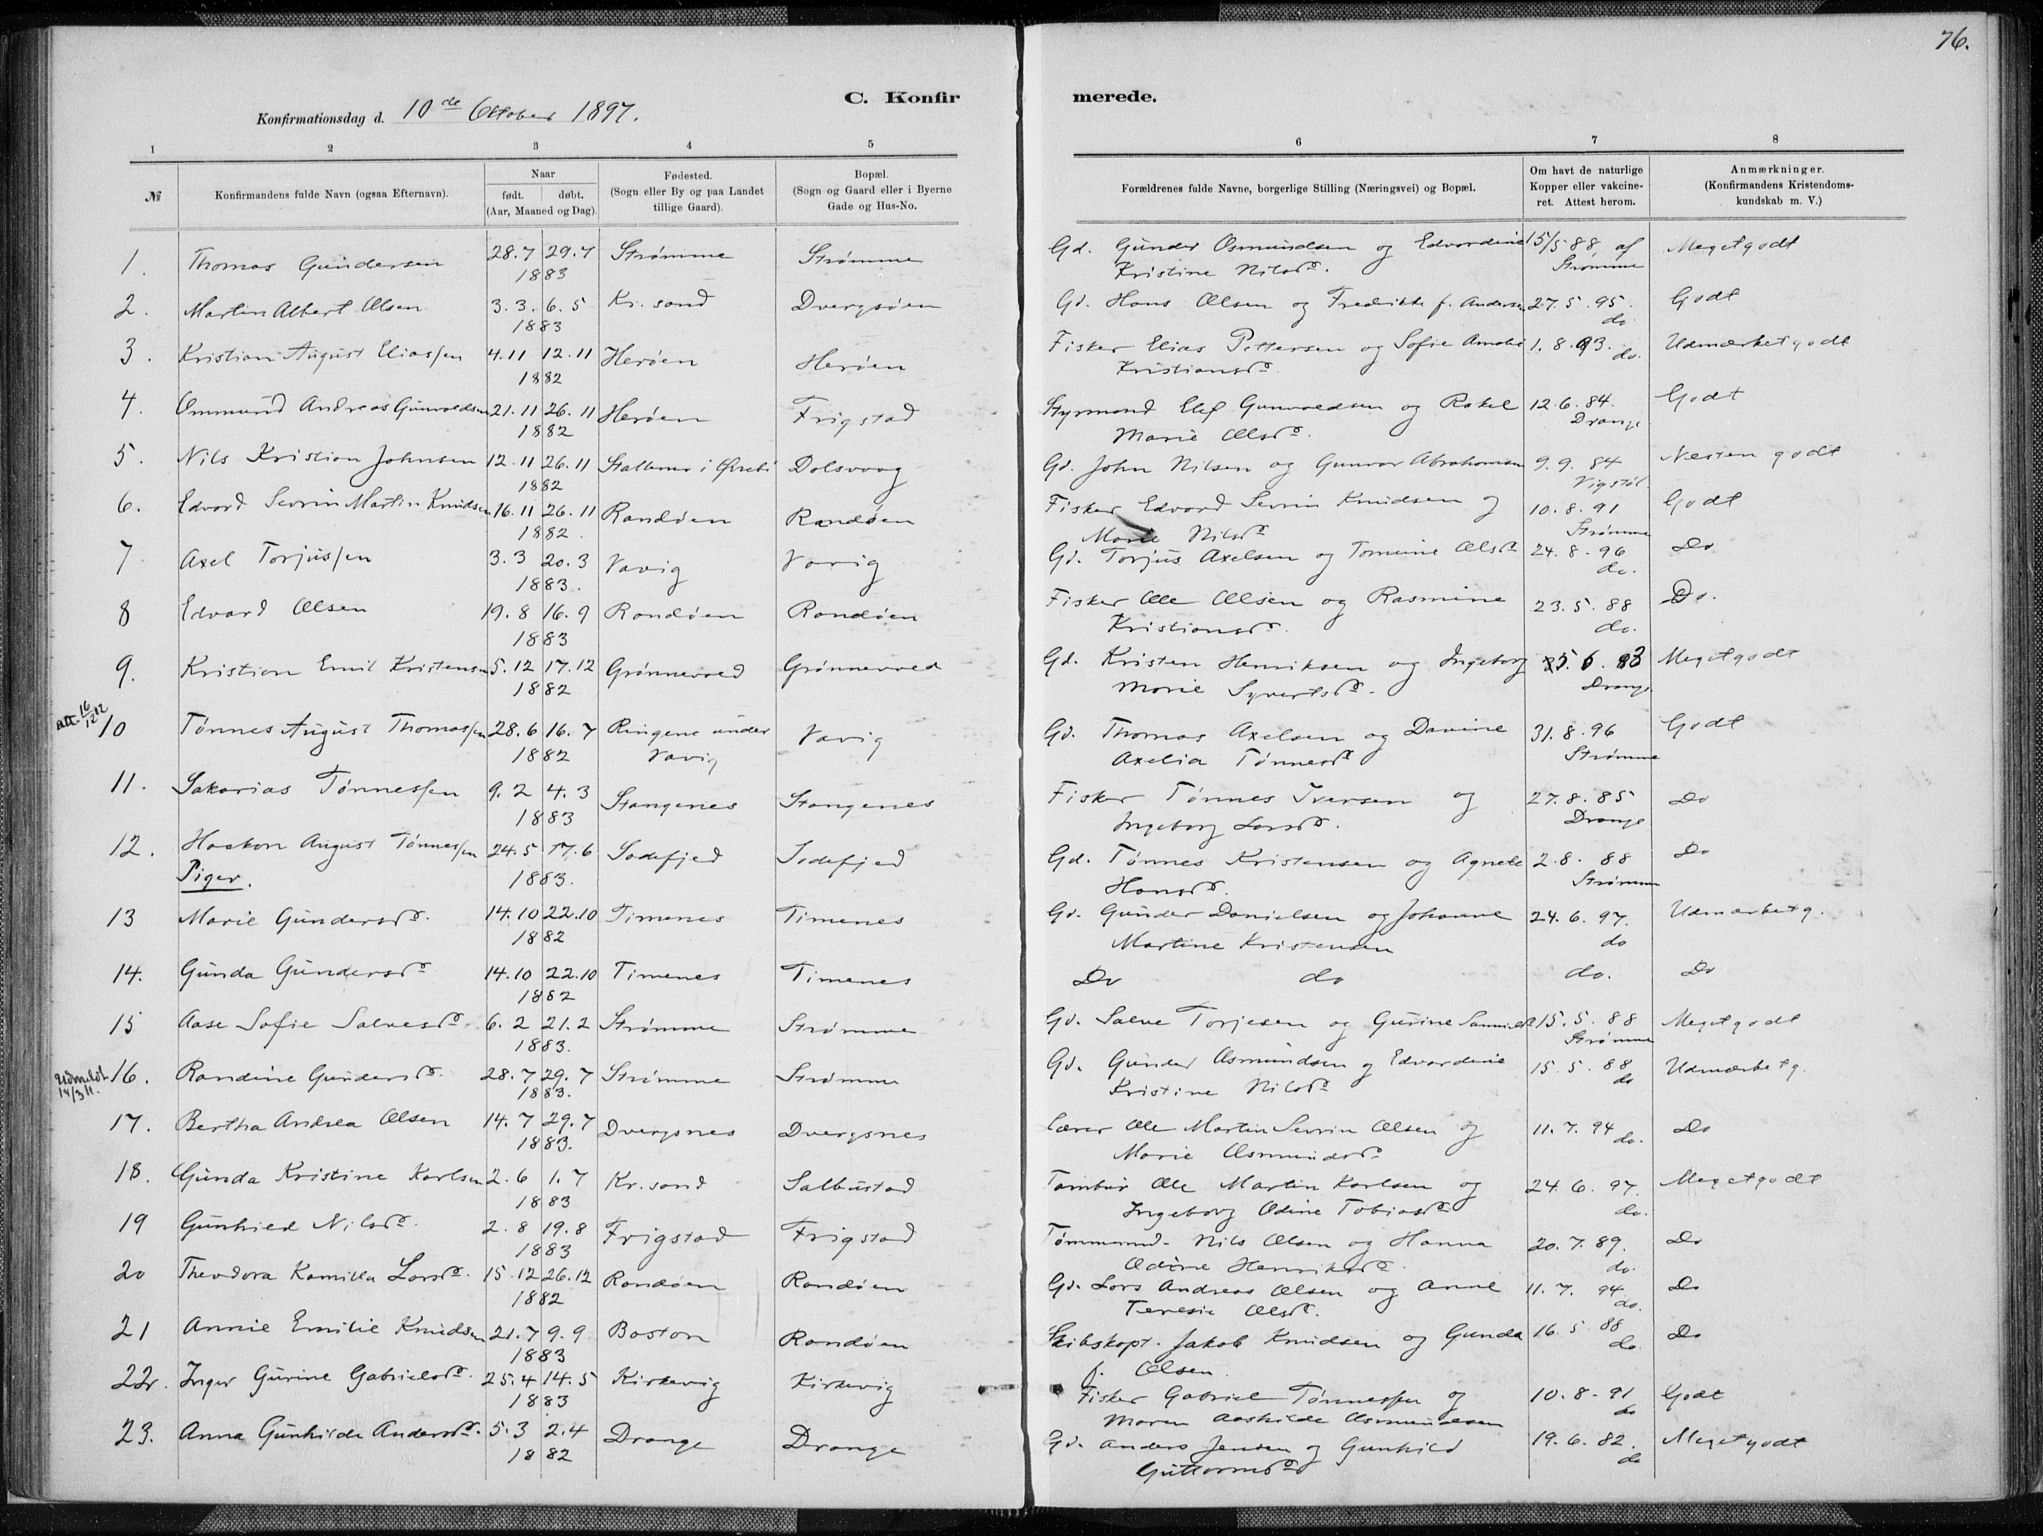 76.
C. Konfirmerede.
Konfirmationsdag d. 10de Oktober 1897.
1 2 3 4 5 6 7 8
№ Konfirmandens fulde Navn (ogsaa Efternavn). Naar født. døbt. (Aar, Maaned og Dag). Fødested. (Sogn eller By og paa Landet tillige Gaard). Bopæl. (Sogn og Gaard eller i Byerne Gade og Hus-No. Forældrenes fulde Navne, borgerlige Stilling (Næringsvei) og Bopæl. Om havt de naturlige Kopper eller vakcineret. Attest herom. Anmærkninger. (Konfirmandens Kristendomskundskab m. V.)
1. Thomas Gundersen 28.7 29.7 1883 Strømme Strømme Gd. Gunder Osmundsen og Edvardine Kristine Nilsd. 15/5 88 af Strømme Meget godt
2. Martin Albert Olsen 3.3. 6.5 1883 Kr.sand Dvergsøen Gd. Hans Olsen og Fredrikke f. Andersen 27.5.95. do. Godt
3. Kristian August Eliassen 4.11 12.11 1882 Herøen Herøen Fisker Elias Pettersen og Sofie Amalie Kristiansd. 1.8.93. do. Udmærket godt
4. Ommund Andreas Gunvaldsen 21.11 26.11 1882 Herøen Frigstad Styrmand Elef Gunvaldsen og Rakel Marie Olsd. 12.6.84. Drange Godt
5. Nils Kristian Johnsen 12.11 26.11 1882 i Øvrebø Dolsvaag Gd. John Nilsen og Gunvor Abrahamsen 9.9.84 Vigstøl Næsten godt
6. Edvard Severin Martin Knudsen 16.11 26.11 1882. Randøen Randøen Fisker Edvard Severin Knudsen og Marie Nilsd. 10.8.91 Strømme Godt
7 Axel Torjussen 3.3 20.3 1883. Vavig Vavig Gd. Torjus Axelsen og Tomine Olsd. 24.8.96 do. Do
8 Edvard Olsen 19.8 16.9 1883 Randøen Randøen Fisker Ole Olsen og Rasmine Kristiansd. 23.5.88 do. Do.
9. Kristian Emil Kristensen 5.12 17.12 1882 Grønnevold Grønnevold Gd. Kristen Henriksen og Ingeborg Marie Syvertsd. 5.6.83 Drange Meget godt
att. 16/12 12 10 Tønnes August Thomassen 28.6 16.7 1882 Ringene under Vavig Vavig Gd. Thomas Axelsen og Davine Axelia Tønnesd. 31.8.96 Strømme Godt
11. Sakarias Tønnessen 9.2 4.3 1883 Stangenes Stangenes Fisker Tønnes Iversen og Ingeborg Larsd. 27.8.85 Drange Do
12. Haakon August Tønnessen 24.5 17.6 1883. Sodefjed Sodefjed Gd. Tønnes Kristensen og Agnete Hansd. 2.8.88 Strømme Do
Piger.
13 Marie Gundersd. 14.10 22.10 1882 Timenes Timenes Gd. Gunder Danielsen og Johanne Martine Kristensen 24.6.97. do Udmærket g.
14. Gunda Gundersd. 14.10 22.10 1882 Timenes Timenes Do do do. Do
15 Aase Sofie Salvesd. 6.2 21.2 1883. Strømme Strømme Gd. Salve Torjesen og Gurine Samuelsd 15.5.88 Strømme Meget godt
Udmeldt 14/3 11. 16. Randine Gundersd. 28.7 29.7 1883. Strømme Strømme Gd. Gunder Osmundsen og Edvardine Kristine Nilsd. 15.5.88 do Udmærket g.
17. Bertha Andrea Olsen 14.7 29.7 1883. Dvergsnes Dvergsnes Lærer Ole Martin Severin Olsen og Marie Osmundsd. 11.7.94 do. Do
18. Gunda Kristine Karlsen 2.6 1.7 1883 Kr.sand Salbustad Tambur Ole Martin Karlsen og Ingeborg Odine Tobiasd. 24.6.97. do. Meget godt
19 Gunhild Nilsd. 2.8 19.8 1883 Frigstad Frigstad Tømmermd. Nils Olsen og Hanna Odine Henriksd. 20.7.89. do. Do
20 Theodora Kamilla Larsd. 15.12 26.12 1882 Randøen Randøen Gd. Lars Andreas Olsen og Anne Teresie Olsd. 11.7.94. do. Do
21 Annie Emilie Knudsen 21.7 9.9 1883 Boston Randøen Skibskapt. Jakob Knudsen og Gunda f. Olsen. 16.5.88 do. Do
22. Inger Gurine Gabrielsd. 25.4 14.5 1883 Kirkevig Kirkevig Fisker Gabriel Tønnessen og Maren Aashilde Osmundsen 10.8.91 do Godt
23. Anna Gunhilde Andersd. 5.3 2.4 1882 Drange Drange Gd. Anders Jensen og Gunhild Guttormsd 19.6.82. do Meget godt